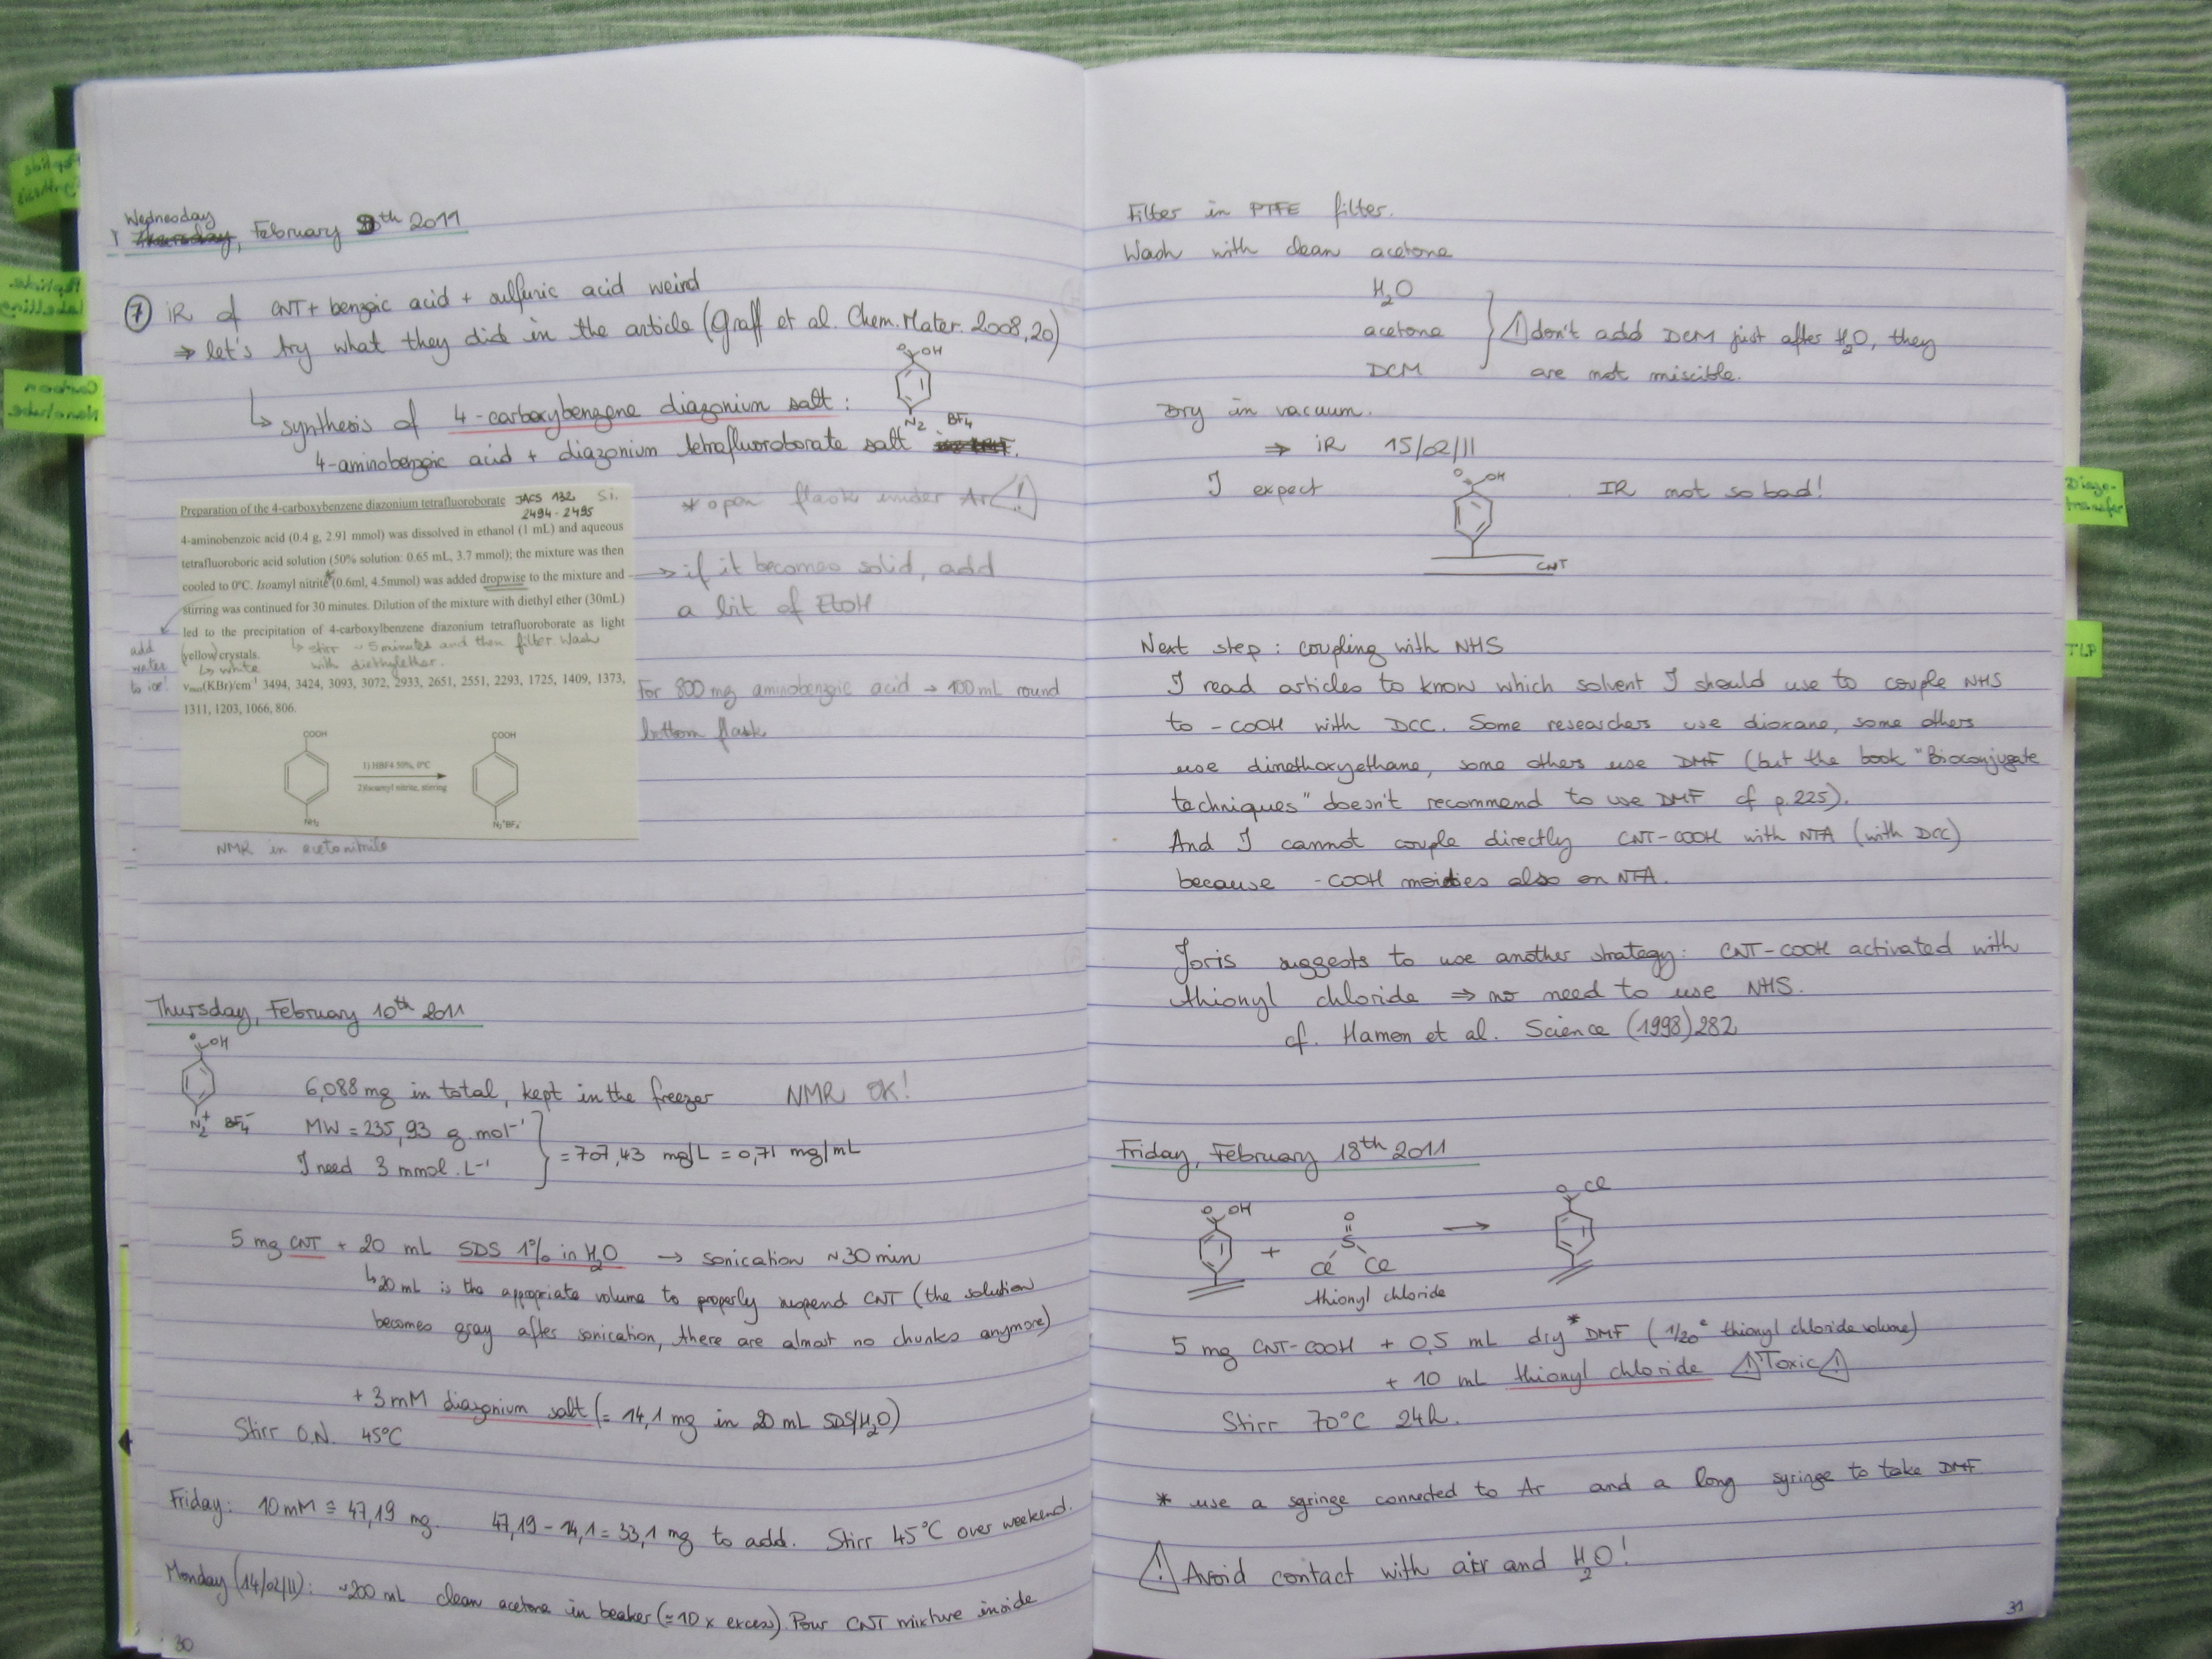 Peptide
Synthesis
Peptide
Labelling
Carbon
Nanotube
Wednesday
Thursday, February 9th 2011
7 iR of CNT + benzoic acid + sulfuric acid weird
⇒ let's try what they did in the article (Graff et al. Chem. Mater. 2008, 20)
↳ synthesis of 4-carboxybenzene diazonium salt :
O OH
N2 BF4
4-aminobenzoic acid + diazonium tetrafluoroborate salt
Preparation of the 4-carboxybenzene diazonium tetrafluoroborate JACS 132 Si.
2494-2495
4-aminobenzoic acid (0.4 g, 2.91 mmol) was dissolved in ethanol (1 mL) and aqueous
tetrafluoroboric acid solution (50% solution: 0.65 mL, 3.7 mmol); the mixture was then
cooled to 0°C. Isoamyl nitrite* (0.6ml, 4.5mmol) was added dropwise to the mixture and
stirring was continued for 30 minutes. Dilution of the mixture with diethyl ether (30mL)
led to the precipitation of 4-carboxylbenzene diazonium tetrafluoroborate as light
(yellow) crystals. ↳ stirr ~5 minutes and then filter. Wash
↳ white with diethylether.
νmax(KBr)/cm-1 3494, 3424, 3093, 3072, 2933, 2651, 2551, 2293, 1725, 1409, 1373,
1311, 1203, 1066, 806.
COOH COOH
1) HBF4 50%, 0°C
2) Isoamyl nitrite, stirring
NH2 N2+BF4-
add
water
to ice!
* open flask under Ar !
→ if it becomes solid, add
a bit of EtOH
For 800 mg aminobenzoic acid → 100 mL round
bottom flask
NMR in acetonitrile
Thursday, February 10th 2011
O OH
N2+ BF4-
6,088 mg in total, kept in the freezer NMR OK!
MW = 235,93 g.mol-1
I need 3 mmol.L-1
= 707,43 mg/L = 0,71 mg/mL
5 mg CNT + 20 mL SDS 1% in H2O → sonication ~30 min
↳ 20 mL is the appropriate volume to properly suspend CNT (the solution
becomes gray after sonication, there are almost no chunks anymore)
+ 3 mM diazonium salt (= 14,1 mg in 20 mL SDS/H2O)
Stirr O.N. 45°C
Friday: 10 mM ≙ 47,19 mg. 47,19 - 14,1 = 33,1 mg to add. Stirr 45°C over weekend.
Monday (14/02/11): ~200 mL clean acetone in beaker (≈10 x excess). Pour CNT mixture inside
30
Filter in PTFE filter.
Wash with clean acetone
H2O
acetone
DCM
! don't add DCM just after H2O, they
are not miscible.
Dry in vacuum.
⇒ iR 15/02/11
I expect
O OH
CNT
IR not so bad!
Next step : coupling with NHS
I read articles to know which solvent I should use to couple NHS
to -COOH with DCC. Some researchers use dioxane, some others
use dimethoxyethane, some others use DMF (but the book "Bioconjugate
techniques" doesn't recommend to use DMF cf p.225).
And I cannot couple directly CNT-COOH with NTA (with DCC)
because -COOH moieties also on NTA.
Joris suggests to use another strategy: CNT-COOH activated with
thionyl chloride ⇒ no need to use NHS.
cf. Hamon et al. Science (1998) 282
Friday, February 18th 2011
O OH + O S Cl Cl → O Cl
thionyl chloride
5 mg CNT-COOH + 0,5 mL dry* DMF (1/20e thionyl chloride volume)
+ 10 mL thionyl chloride ! Toxic !
Stirr 70°C 24h.
* use a syringe connected to Ar and a long syringe to take DMF
! Avoid contact with air and H2O!
31
Diazo-
transfer
TLP